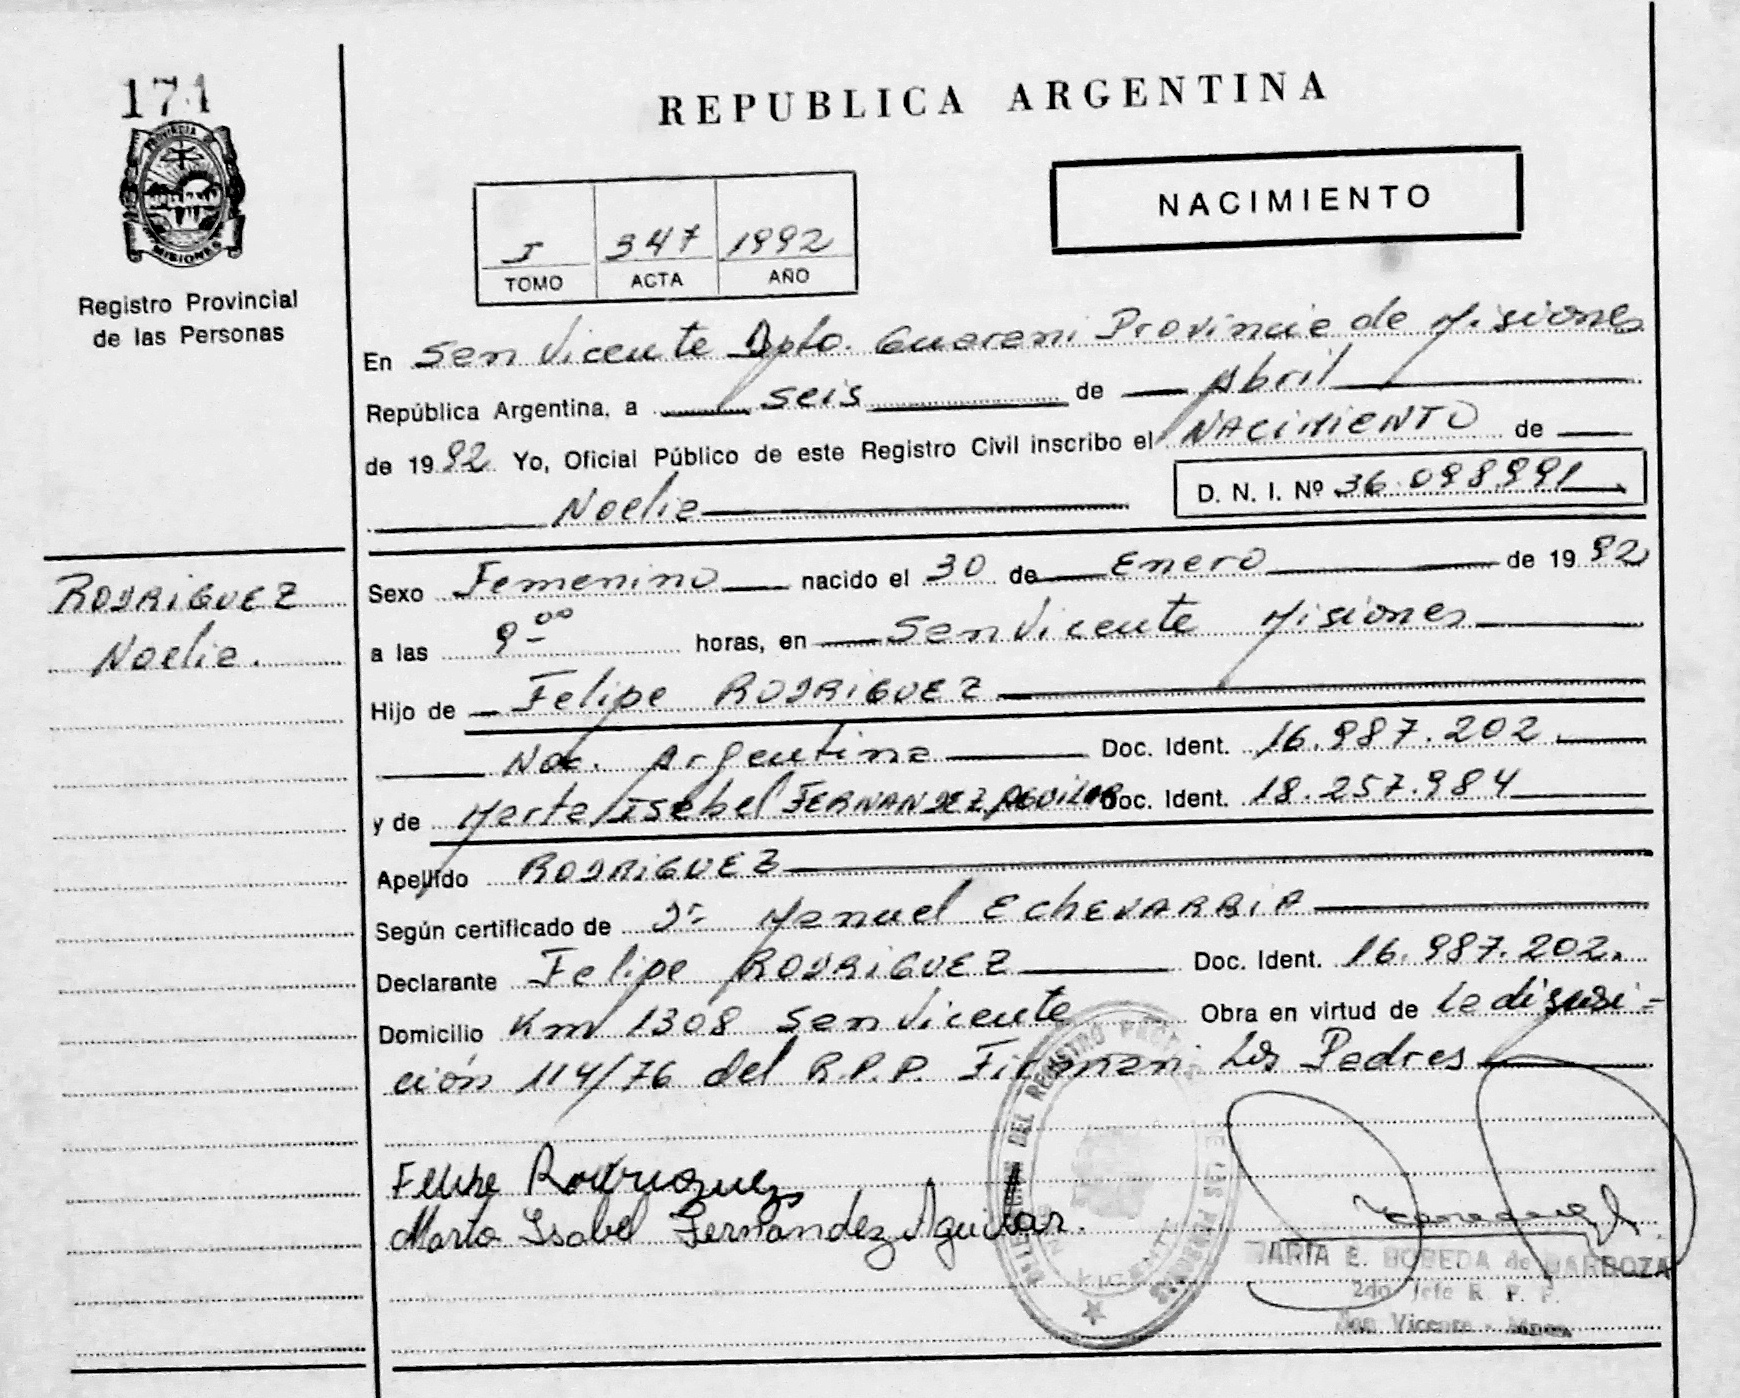 174
PROVINCIA DE
MISIONES
Registro Provincial
de las Personas
REPUBLICA ARGENTINA
NACIMIENTO
I 347 1992
TOMO ACTA AÑO
En San Vicente Dpto. Guarani Provincia de Misiones
República Argentina, a seis de Abril
de 1992 Yo, Oficial Público de este Registro Civil inscribo el NACIMIENTO de
Noelia D. N. I. Nº 36.098991
RODRIGUEZ
Noelia.
Sexo Femenino nacido el 30 de Enero de 1992
a las 9 00 horas, en San Vicente Misiones
Hijo de Felipe RODRIGUEZ
Nac. Argentina Doc. Ident. 16.987.202.
y de Marta Isabel FERNANDEZ AGUILAR Doc. Ident. 18.257.984
Apellido RODRIGUEZ
Según certificado de Dr. Manuel EcheVARRiA
Declarante Felipe RODRIGUEZ Doc. Ident. 16.987.202.
Domicilio Km 1308 San Vicente Obra en virtud de la disposi=
ción 114/76 del R.P.P. Firman: Los Padres
Felipe Rodriguez
Marta Isabel Fernandez Aguilar.
DEL REGISTRO
MARIA E. BOBEDA de BARROZA
2do Jefe R. P. P.
San Vicente - Mnes.